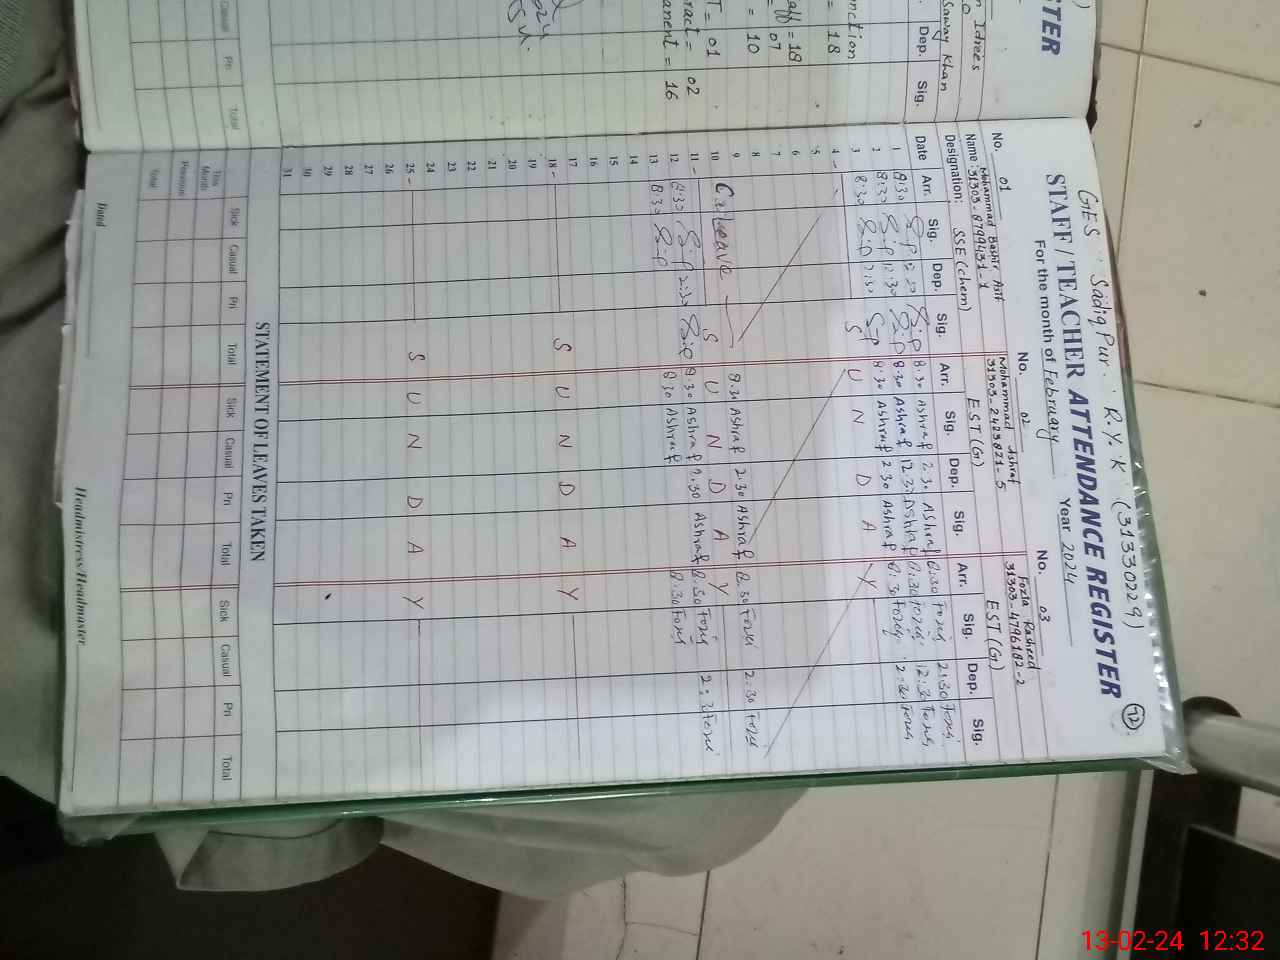 GES Sadiq Pur. R.Y.K (31330229)
12
STAFF / TEACHER ATTENDANCE REGISTER
For the month of February Year 2024
No. 01 No. 02 No. 03
Mohammad Bashir Asif Mohammad Ashraf Fozia Rasheed
Name: 31303-8799431-1 31303-2423821-5 31303-4796182-2
Designation: SSE (chem) EST (G) EST (G)
Date Arr. Sig. Dep. Sig. Arr. Sig. Dep. Sig. Arr. Sig. Dep. Sig.
1 8:30 8.30 Ashraf 2.30 Ashraf 8.30 Fozia 2:30 Fozia
2 8:30 12:30 8.30 Ashraf 12.30 Ashraf 8:30 Fozia 12:30 Fozia
3 8:30 2:30 8.30 Ashraf 2.30 Ashraf 8:30 Fozia 2:30 Fozia
4 S U N D A Y
5
6
7
8
9 C. Leave 8.30 Ashraf 2.30 Ashraf 8.30 Fozia 2.30 Fozia
10
11 S U N D A Y
12 8:30 2:30 8.30 Ashraf 2.30 Ashraf 8.30 Fozia 2:30 Fozia
13 8:30 8.30 Ashraf 8:30 Fozia
14
15
16
17
18 S U N D A Y
19
20
21
22
23
24
25 S U N D A Y
26
27
28
29
30
31
STATEMENT OF LEAVES TAKEN
Sick Casual Pri Total Sick Casual Pri Total Sick Casual Pri Total
This Month
Previous
Total
Dated Headmistress/Headmaster
STER
n Idrees
Sanway Khan
Dep. Sig.
nction
= 18
aff = 18
= 07
= 10
T = 01
ract = 02
anent = 16
Casual Pri Total
13-02-24 12:32